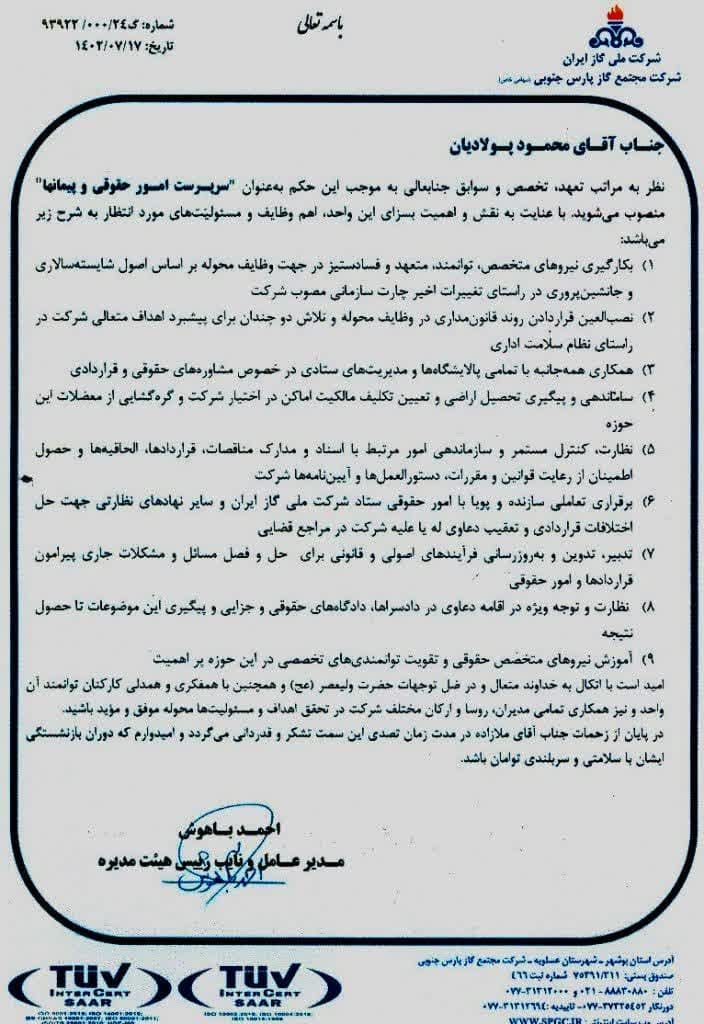 باسمه تعالی
شماره: گ۲۴/۰۰۰/ ۹۳۹۲۲
تاریخ: ۱۴۰۲/۰۷/۱۷
شرکت ملی گاز ایران
شرکت مجتمع گاز پارس جنوبی (سهامی خاص)
جناب آقای محمود پولادیان
نظر به مراتب تعهد، تخصص و سوابق جنابعالی به موجب این حکم به‌عنوان "سرپرست امور حقوقی و پیمانها"
منصوب می‌شوید. با عنایت به نقش و اهمیت بسزای این واحد، اهم وظایف و مسئولیت‌های مورد انتظار به شرح زیر
می‌باشد:
۱) بکارگیری نیروهای متخصص، توانمند، متعهد و فسادستیز در جهت وظایف محوله بر اساس اصول شایسته‌سالاری
و جانشین‌پروری در راستای تغییرات اخیر چارت سازمانی مصوب شرکت
۲) نصب‌العین قراردادن روند قانون‌مداری در وظایف محوله و تلاش دو چندان برای پیشبرد اهداف متعالی شرکت در
راستای نظام سلامت اداری
۳) همکاری همه‌جانبه با تمامی پالایشگاه‌ها و مدیریت‌های ستادی در خصوص مشاوره‌های حقوقی و قراردادی
۴) ساماندهی و پیگیری تحصیل اراضی و تعیین تکلیف مالکیت اماکن در اختیار شرکت و گره‌گشایی از معضلات این
حوزه
۵) نظارت، کنترل مستمر و سازماندهی امور مرتبط با اسناد و مدارک مناقصات، قراردادها، الحاقیه‌ها و حصول
اطمینان از رعایت قوانین و مقررات، دستورالعمل‌ها و آیین‌نامه‌ها شرکت
۶) برقراری تعاملی سازنده و پویا با امور حقوقی ستاد شرکت ملی گاز ایران و سایر نهادهای نظارتی جهت حل
اختلافات قراردادی و تعقیب دعاوی له یا علیه شرکت در مراجع قضایی
۷) تدبیر، تدوین و به‌روزرسانی فرآیندهای اصولی و قانونی برای حل و فصل مسائل و مشکلات جاری پیرامون
قراردادها و امور حقوقی
۸) نظارت و توجه ویژه در اقامه دعاوی در دادسراها، دادگاه‌های حقوقی و جزایی و پیگیری این موضوعات تا حصول
نتیجه
۹) آموزش نیروهای متخصص حقوقی و تقویت توانمندی‌های تخصصی در این حوزه پر اهمیت
امید است با اتکال به خداوند متعال و در ضل توجهات حضرت ولیعصر (عج) و همچنین با همفکری و همدلی کارکنان توانمند آن
واحد و نیز همکاری تمامی مدیران، روسا و ارکان مختلف شرکت در تحقق اهداف و مسئولیت‌ها محوله موفق و مؤید باشید.
در پایان از زحمات جناب آقای ملازاده در مدت زمان تصدی این سمت تشکر و قدردانی می‌گردد و امیدوارم که دوران بازنشستگی
ایشان با سلامتی و سربلندی توامان باشد.
احمد باهوش
مدیر عامل و نایب رییس هیئت مدیره
آدرس استان بوشهر - شهرستان عسلویه - شرکت مجتمع گاز پارس جنوبی
صندوق پستی: ۷۵۳۹۱/۳۱۱ شماره ثبت ۴۶۶
تلفن: ۸۸۸۳۰۸۸۰-۰۲۱ و ۳۱۳۱۲۰۰۰-۰۷۷
دورنگار ۳۷۳۲۵۴۵۲-۰۷۷ تاییدیه: ۳۱۳۱۲۶۹۴-۰۷۷
WWW.SPGC.IR
TÜV
INTERCERT
SAAR
TÜV
INTERCERT
SAAR